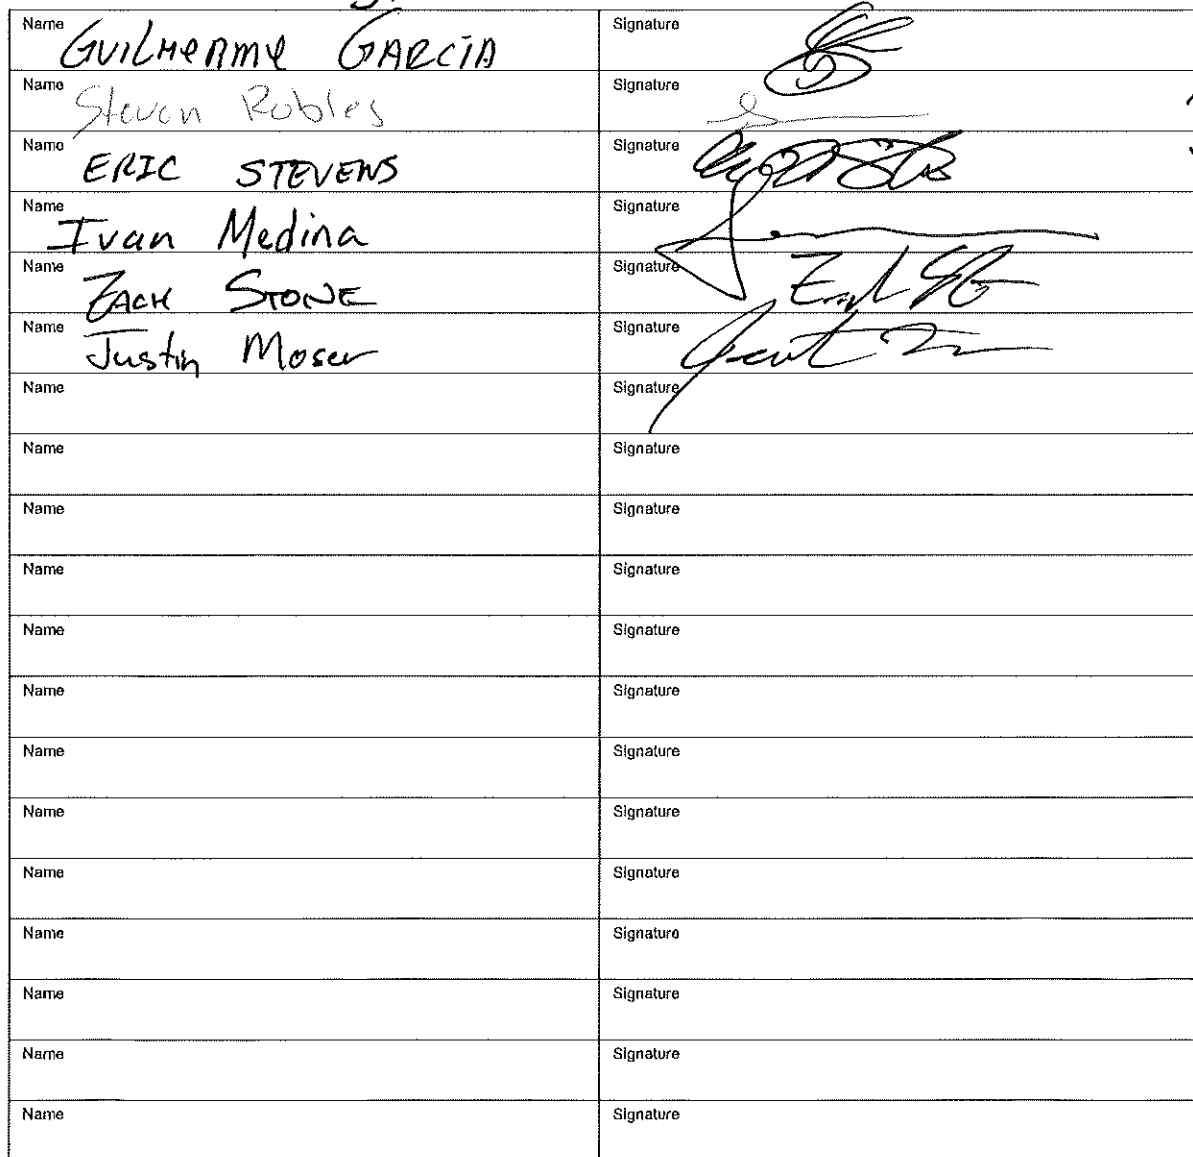 Name Signature
GUILHERME GARCIA
Name Signature
Steven Robles
Name Signature
ERIC STEVENS
Name Signature
Ivan Medina
Name Signature
ZACH STONE
Name Signature
Justin Moser
Name Signature
Name Signature
Name Signature
Name Signature
Name Signature
Name Signature
Name Signature
Name Signature
Name Signature
Name Signature
Name Signature
Name Signature
Name Signature